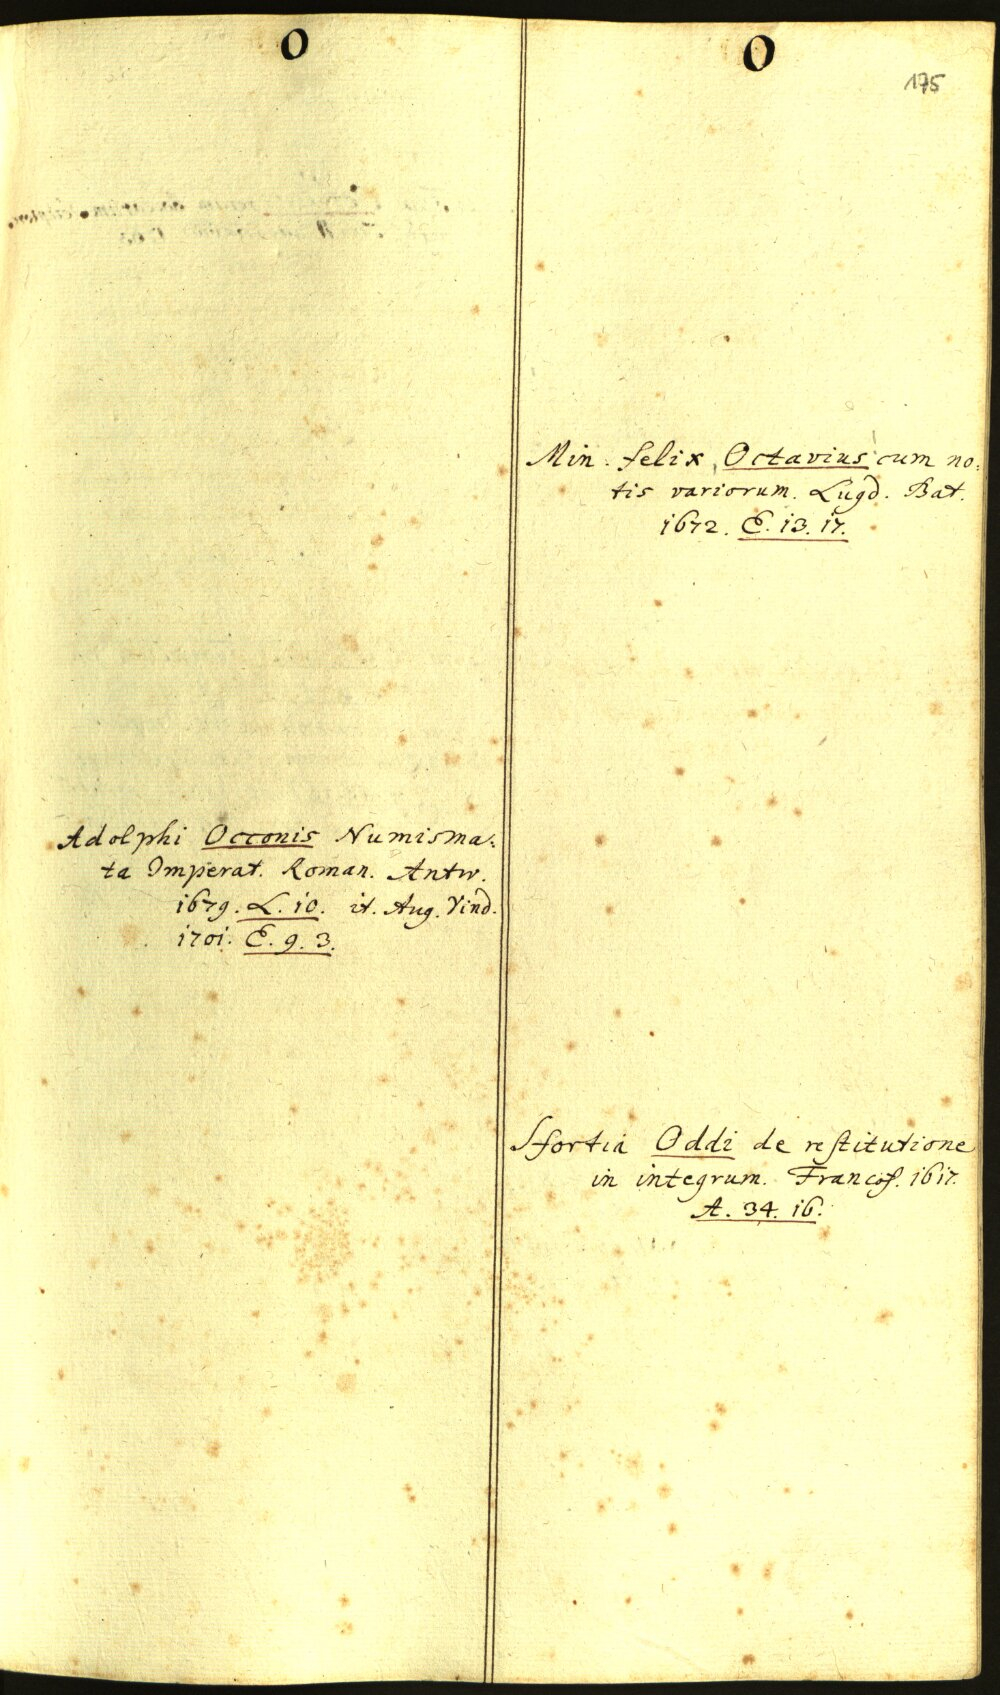 O
Adolphi Occonis Numisma:
ta Imperat. Roman. Antw.
1679. L. 10. it. Aug. Vind.
1701. E. 9. 3.
O
175
Min. felix Octavius cum no:
tis variorum. Lugd. Bat.
1672. E. 13. 17.
Sfortia Oddi de restitutione
in integrum. Francof. 1617.
A. 34. 16.